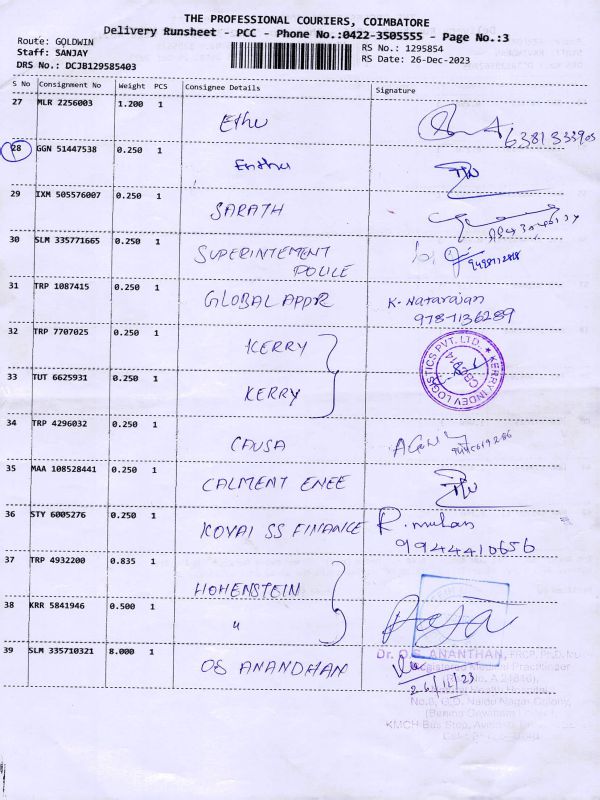 THE PROFESSIONAL COURIERS, COIMBATORE
Delivery Runsheet - PCC - Phone No.:0422-3505555 - Page No.:3
Route: GOLDWIN
Staff: SANJAY
DRS No.: DCJB129585403
RS No.: 1295854
RS Date: 26-Dec-2023
S No Consignment No Weight PCS Consignee Details Signature
27 MLR 2256003 1.200 1 Ethu 6381333905
28 GGN 51447538 0.250 1 Enthu
29 IXM 505576007 0.250 1 SARATH
30 SLM 335771665 0.250 1 SUPERINTEMENT
POLILE
31 TRP 1087415 0.250 1 GLOBAL APPR K. Natarajan
9787136289
32 TRP 7707025 0.250 1 KERRY
KERRY INDEV LOGISTICS PVT. LTD.
CBE-14
33 TUT 6625931 0.250 1 KERRY
34 TRP 4296032 0.250 1 CAUSA
35 MAA 108528441 0.250 1 CALMENT ENEE
36 STY 6005276 0.250 1 KOVAI SS FINANCE R. muhan
9944410656
37 TRP 4932200 0.835 1 HOHENSTEIN
38 KRR 5841946 0.500 1 "
39 SLM 335710321 8.000 1 OS ANANDHAN
Dr. O.S. ANANTHAN,
Registered Medical Practitioner
26/12/23
No.8, G.D. Naidu Nagar Colony,
KMCH Bus Stop,